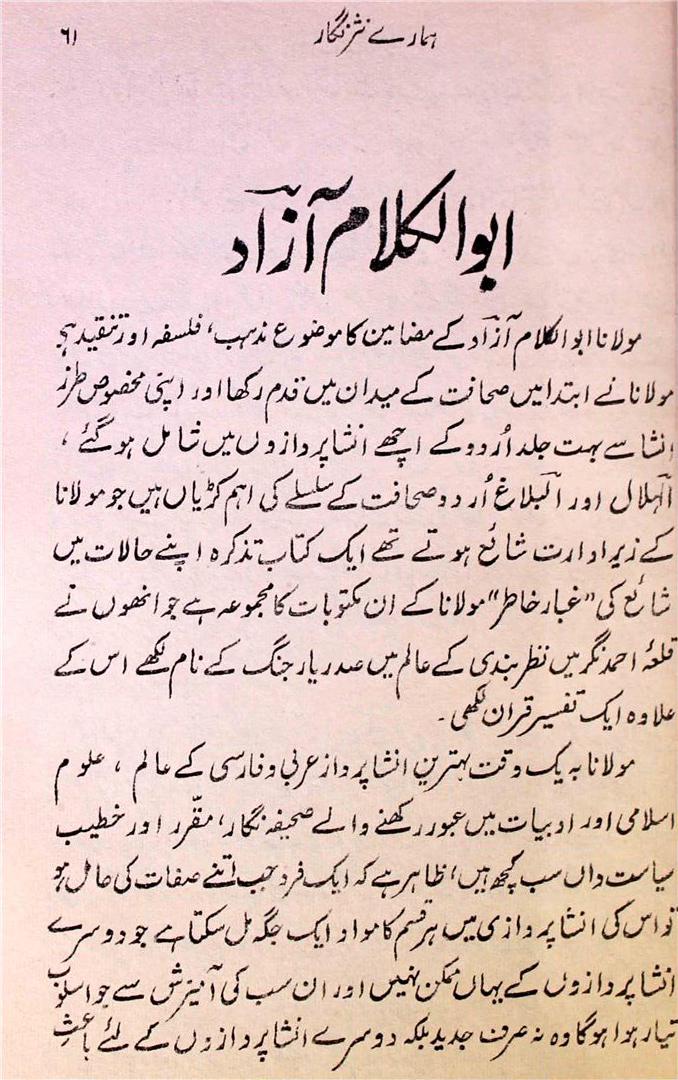 ہمارے نثر نگار ۶۱
ابوالکلام آزاد
مولانا ابوالکلام آزاد کے مضامین کا موضوع مذہب، فلسفہ اور تنقید ہے
مولانا نے ابتدا میں صحافت کے میدان میں قدم رکھا اور اپنی مخصوص طرز
انشا سے بہت جلد اُردو کے اچھے انشا پردازوں میں شامل ہو گئے،
الہلال اور البلاغ اُردو صحافت کے سلسلے کی اہم کڑیاں ہیں جو مولانا
کے زیر ادارت شائع ہوتے تھے ایک کتاب تذکرہ اپنے حالات میں
شائع کی "غبار خاطر" مولانا کے ان مکتوبات کا مجموعہ ہے جو انھوں نے
قلعۂ احمد نگر میں نظر بندی کے عالم میں صدر یار جنگ کے نام لکھے اس کے
علاوہ ایک تفسیر قران لکھی۔
مولانا بہ یک وقت بہترین انشا پرداز عربی و فارسی کے عالم، علوم
اسلامی اور ادبیات میں عبور رکھنے والے صحیفہ نگار، مقرّر اور خطیب
سیاست داں سب کچھ ہیں، ظاہر ہے کہ ایک فرد جب اتنے صفات کی حامل ہو
تو اس کی انشا پردازی میں ہر قسم کا مواد ایک جگہ مل سکتا ہے جو دوسرے
انشا پردازوں کے یہاں ممکن نہیں اور ان سب کی آمیزش سے جو اسلوب
تیار ہوا ہوگا وہ نہ صرف جدید بلکہ دوسرے انشا پردازوں کے لئے باعثِ